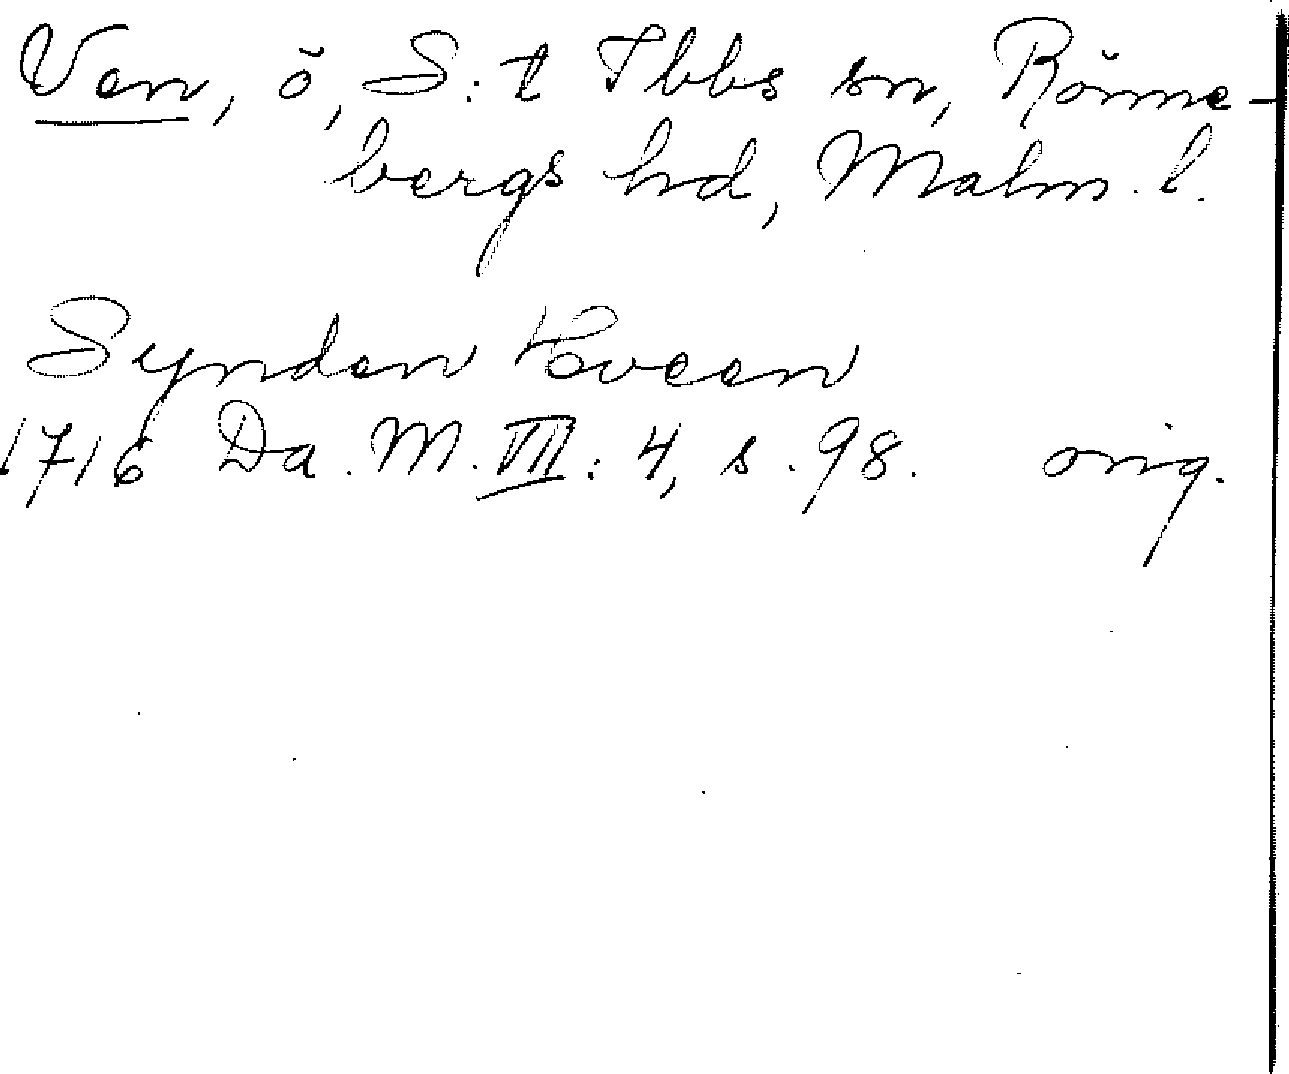 Ven, ö, S:t Ibbs sn, Rönne-
bergs hd, Malm. l.
Synden Hveen
1716 Da. M. III: 4, s. 98. orig.